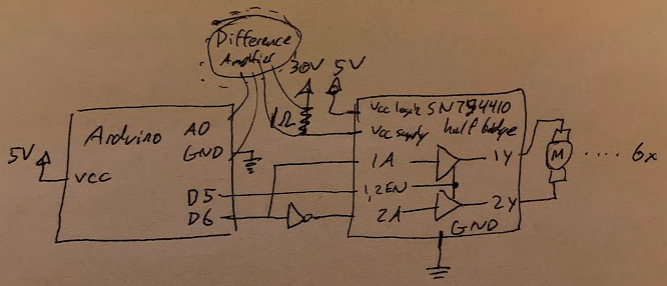 Difference
Amplifier
30V 5V
1Ω
Arduino
A0
GND
5V
VCC
D5
D6
Vcc logic SN754410
Vcc supply half bridge
1A
1Y
1,2EN
2A
2Y
GND
M
.... 6x